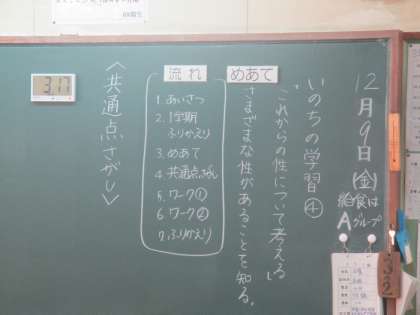 12月9日(金)
給食は
Aグループ
いのちの学習④
「これからの性について考える」
めあて
さまざまな性があることを知る。
流れ
1. あいさつ
2. 1学期
ふりかえり
3. めあて
4. 共通点さがし
5. ワーク①
6. ワーク②
7. ふりかえり
<共通点さがし>
3:17
32